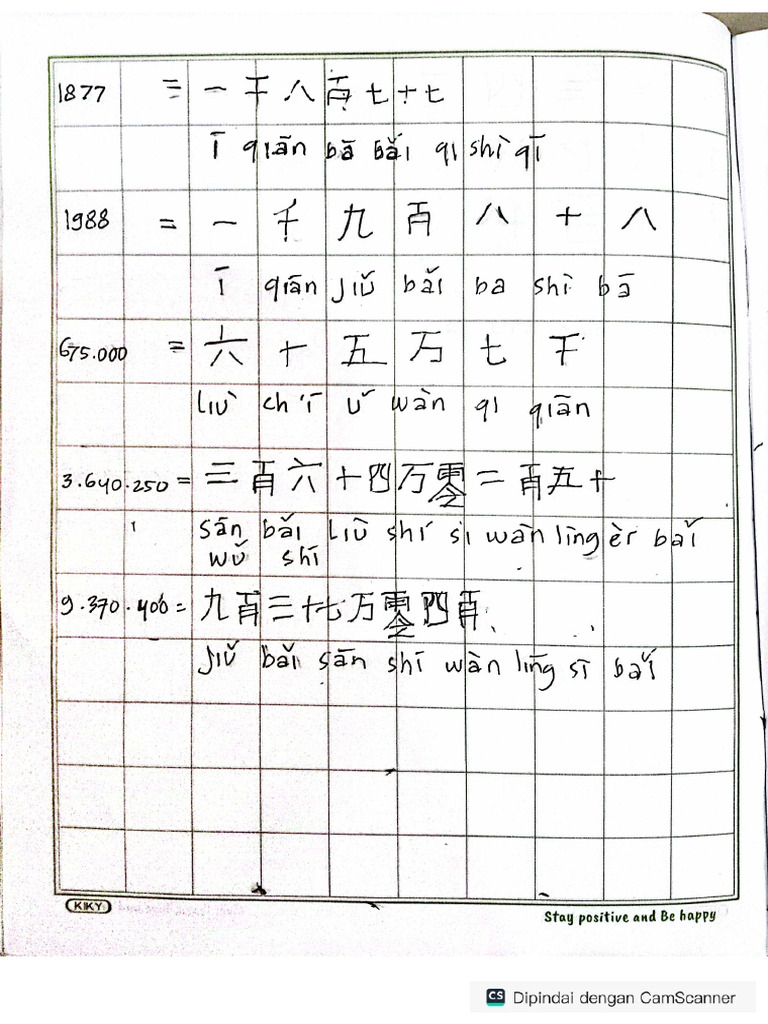 1877 = 一千八百七十七
ī qiān bā bǎi qi shì qī
1988 = 一千九百八十八
ī qiān jiǔ bǎi ba shì bā
675.000 = 六十五万七千
Liù ch'ī ǔ wàn qi qiān
3.640.250 = 三百六十四万零二百五十
sān bǎi Liù shí si wàn lìng èr bǎi
wǔ shī
9.370.400 = 九百三十七万零四百
jiǔ bǎi sān shī wàn līng sī bǎi
KIKY
Stay positive and Be happy
CS Dipindai dengan CamScanner